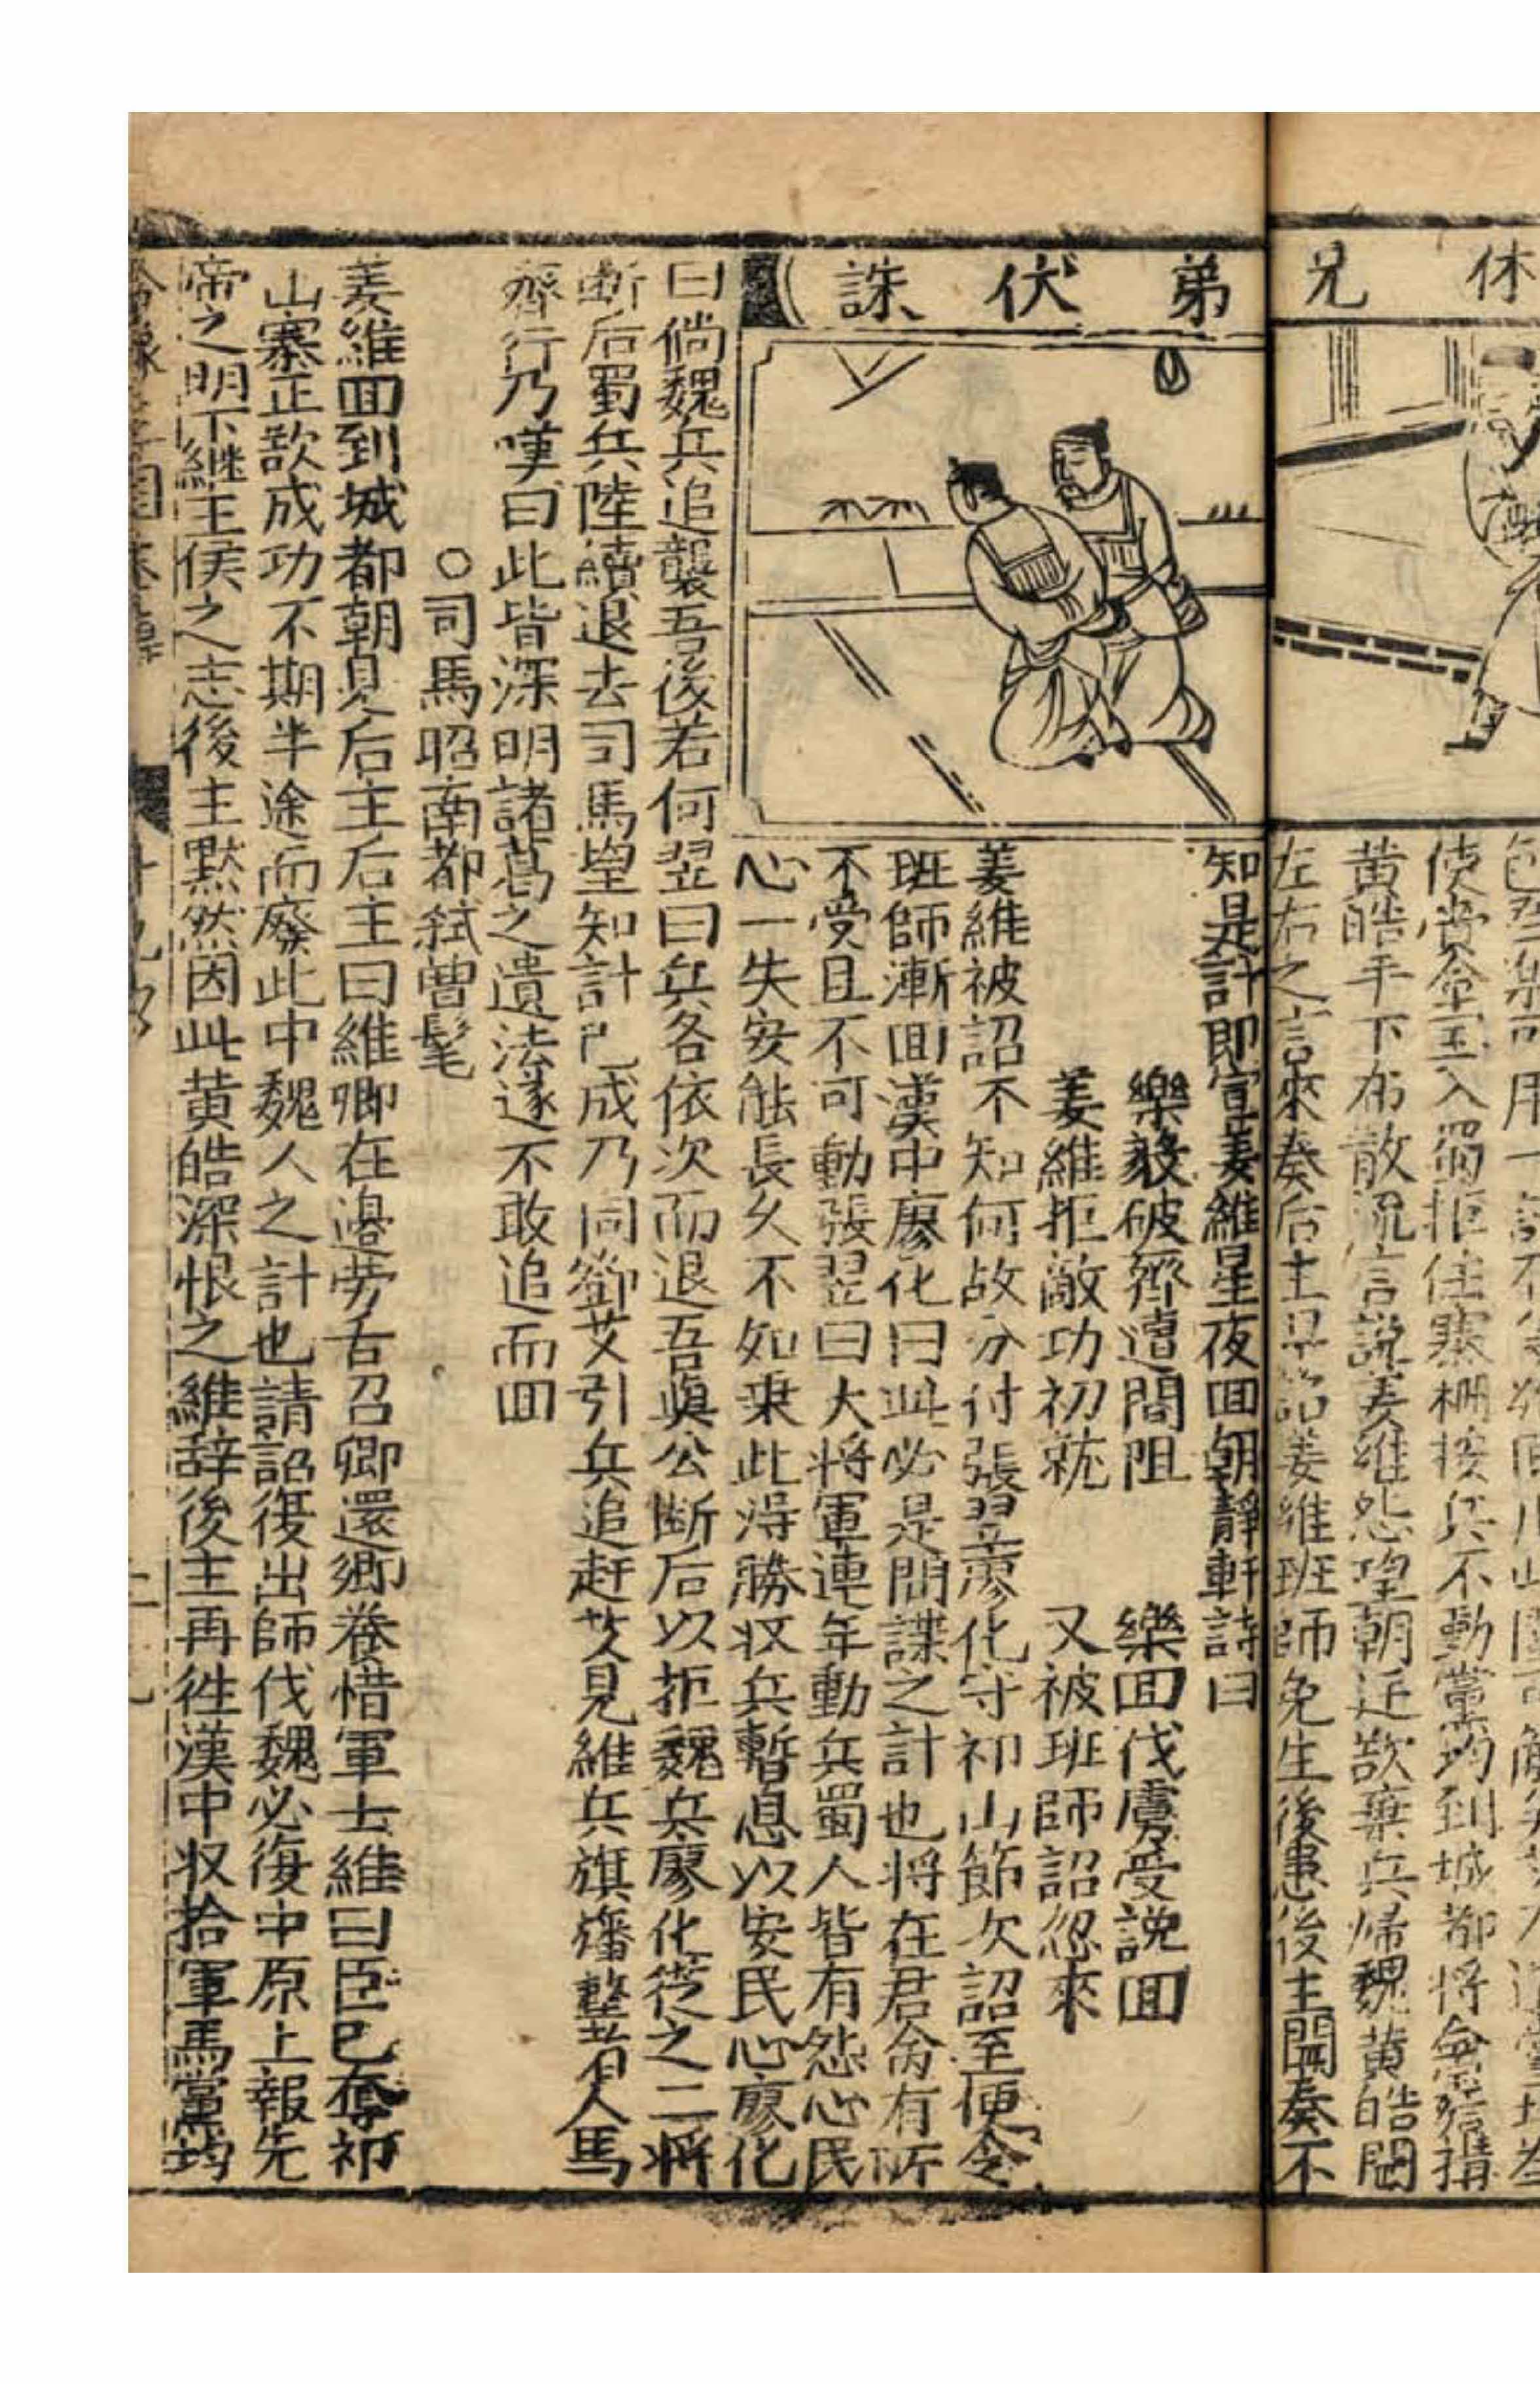 休兄
弟伏誅
使賫金宝入蜀拒住寨栅按兵不動黨均到城都将金宝搆
黄皓手下布散流言說姜維怨望朝廷欲棄兵帰魏黄皓聞
左右之言來奏后主早詔姜維班師免生後患後主聞奏不
知是計即宣姜維星夜囬朝靜軒詩曰
樂毅破齊遭間阻 樂囬伐虜受說囬
姜維拒敵功初就 又被班師詔忽來
姜維被詔不知何故分付張翌廖化守祁山節次詔至便令
班師漸囬漢中廖化曰此必是間諜之計也将在君命有所
不受且不可動張翌曰大将軍連年動兵蜀人皆有怨心民
心一失安能長久不如乗此得勝收兵暫息以安民心廖化
曰倘魏兵追襲吾後若何翌曰兵各依次而退吾與公断后以拒魏兵廖化從之二将
断后蜀兵陸續退去司馬望知計已成乃同鄧艾引兵追赶艾見維兵旗旛整者人馬
齊行乃嘆曰此皆深明諸葛之遺法遂不敢追而囬
○司馬昭南都弑曹髦
姜維囬到城都朝見后主后主曰維卿在邉劳舌召卿還卿巻惜軍士維曰臣已奪祁
山寨正欲成功不期半途而廢此中魏人之計也請詔復出師伐魏必復中原上報先
帝之明下継王侯之志後主黙然因此黄皓深恨之維辞後主再徃漢中收拾軍馬黨均